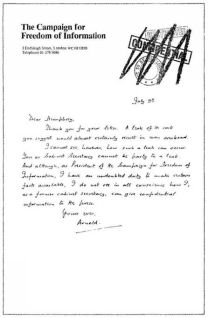 The Campaign for
Freedom of Information
3 Endsleigh Street, London WC1H 0DD
Telephone 01-278 9686
CONFIDENTIAL
July 28
Dear Humphrey,
Thank you for your letter. A leak of the sort
you suggest would almost certainly result in
I cannot see, however, how such a leak can occur.
You as Cabinet Secretary cannot be party to a leak.
And although, as President of the Campaign for Freedom of
Information, I have an undoubted duty to make certain
facts available, I do not see in all conscience how I,
as a former cabinet secretary, can give confidential
information to the press.
Yours ever,
Arnold.